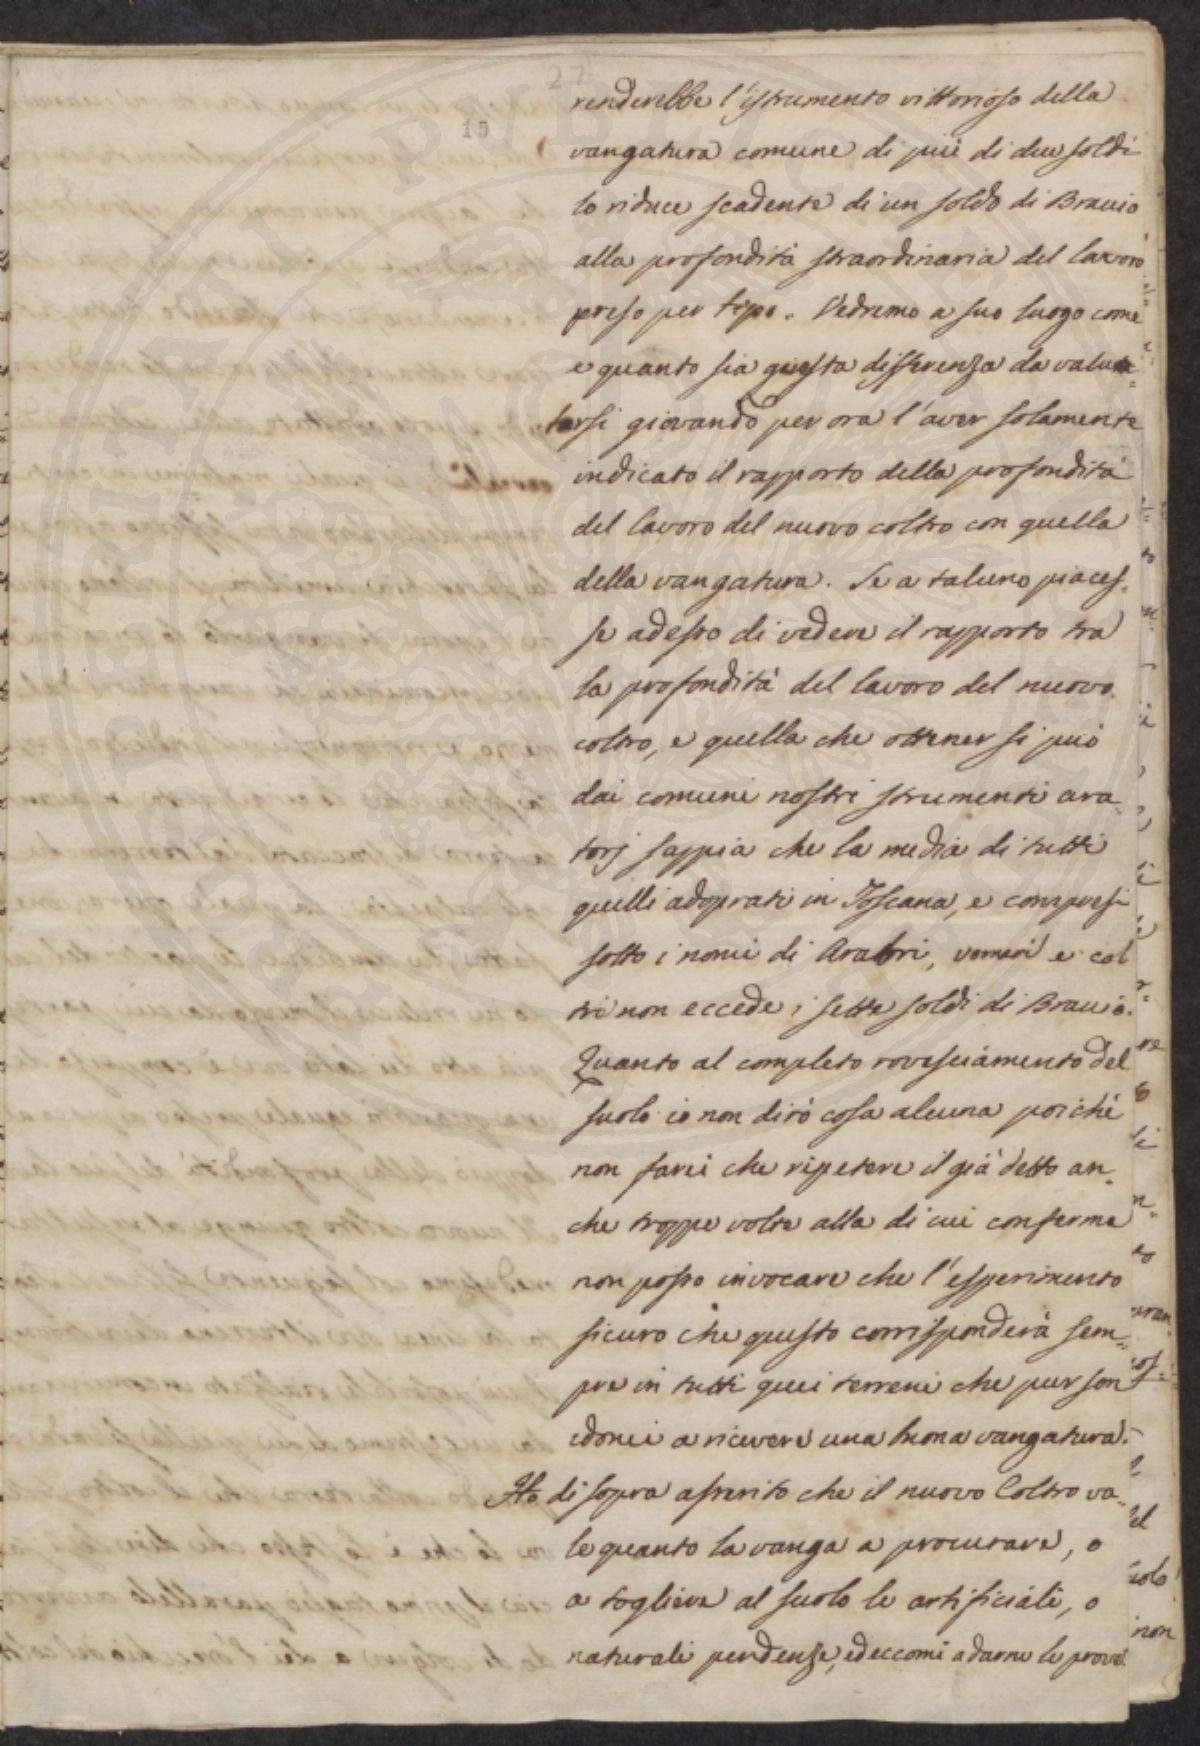 27
15
renderebbe l'istrumento vittorioso della
vangatura comune di più di due soldi
lo riduce scadente di un soldo di Braccio
alla profondità straordinaria del lavoro
preso per tipo. Vedremo a suo luogo come
e quanto sia questa differenza da valu-
tarsi giovando per ora l'aver solamente
indicato il rapporto della profondità
del lavoro del nuovo coltro con quella
della vangatura. Se a taluno piaces-
se adesso di vedere il rapporto tra
la profondità del lavoro del nuovo
coltro, e quella che ottener si può
dai comuni nostri strumenti ara-
torj sappia che la media di tutti
quelli adoprati in Toscana, e compresi
sotto i nomi di Aratri, vomeri e col
tri non eccede i sette soldi di Braccio.
Quanto al completo rovesciamento del
suolo io non dirò cosa alcuna poichè
non farei che ripetere il già detto an-
che troppe volte alla di cui conferma
non posso invocare che l'esperimento
sicuro che questo corrisponderà sem-
pre in tutti quei terreni che pur son
idonei a ricevere una buona vangatura.
Ho di sopra asserito che il nuovo Coltro va-
le quanto la vanga a procurare, o
a togliere al suolo le artificiali, o
naturali pendenze, ed eccomi a darne le prove